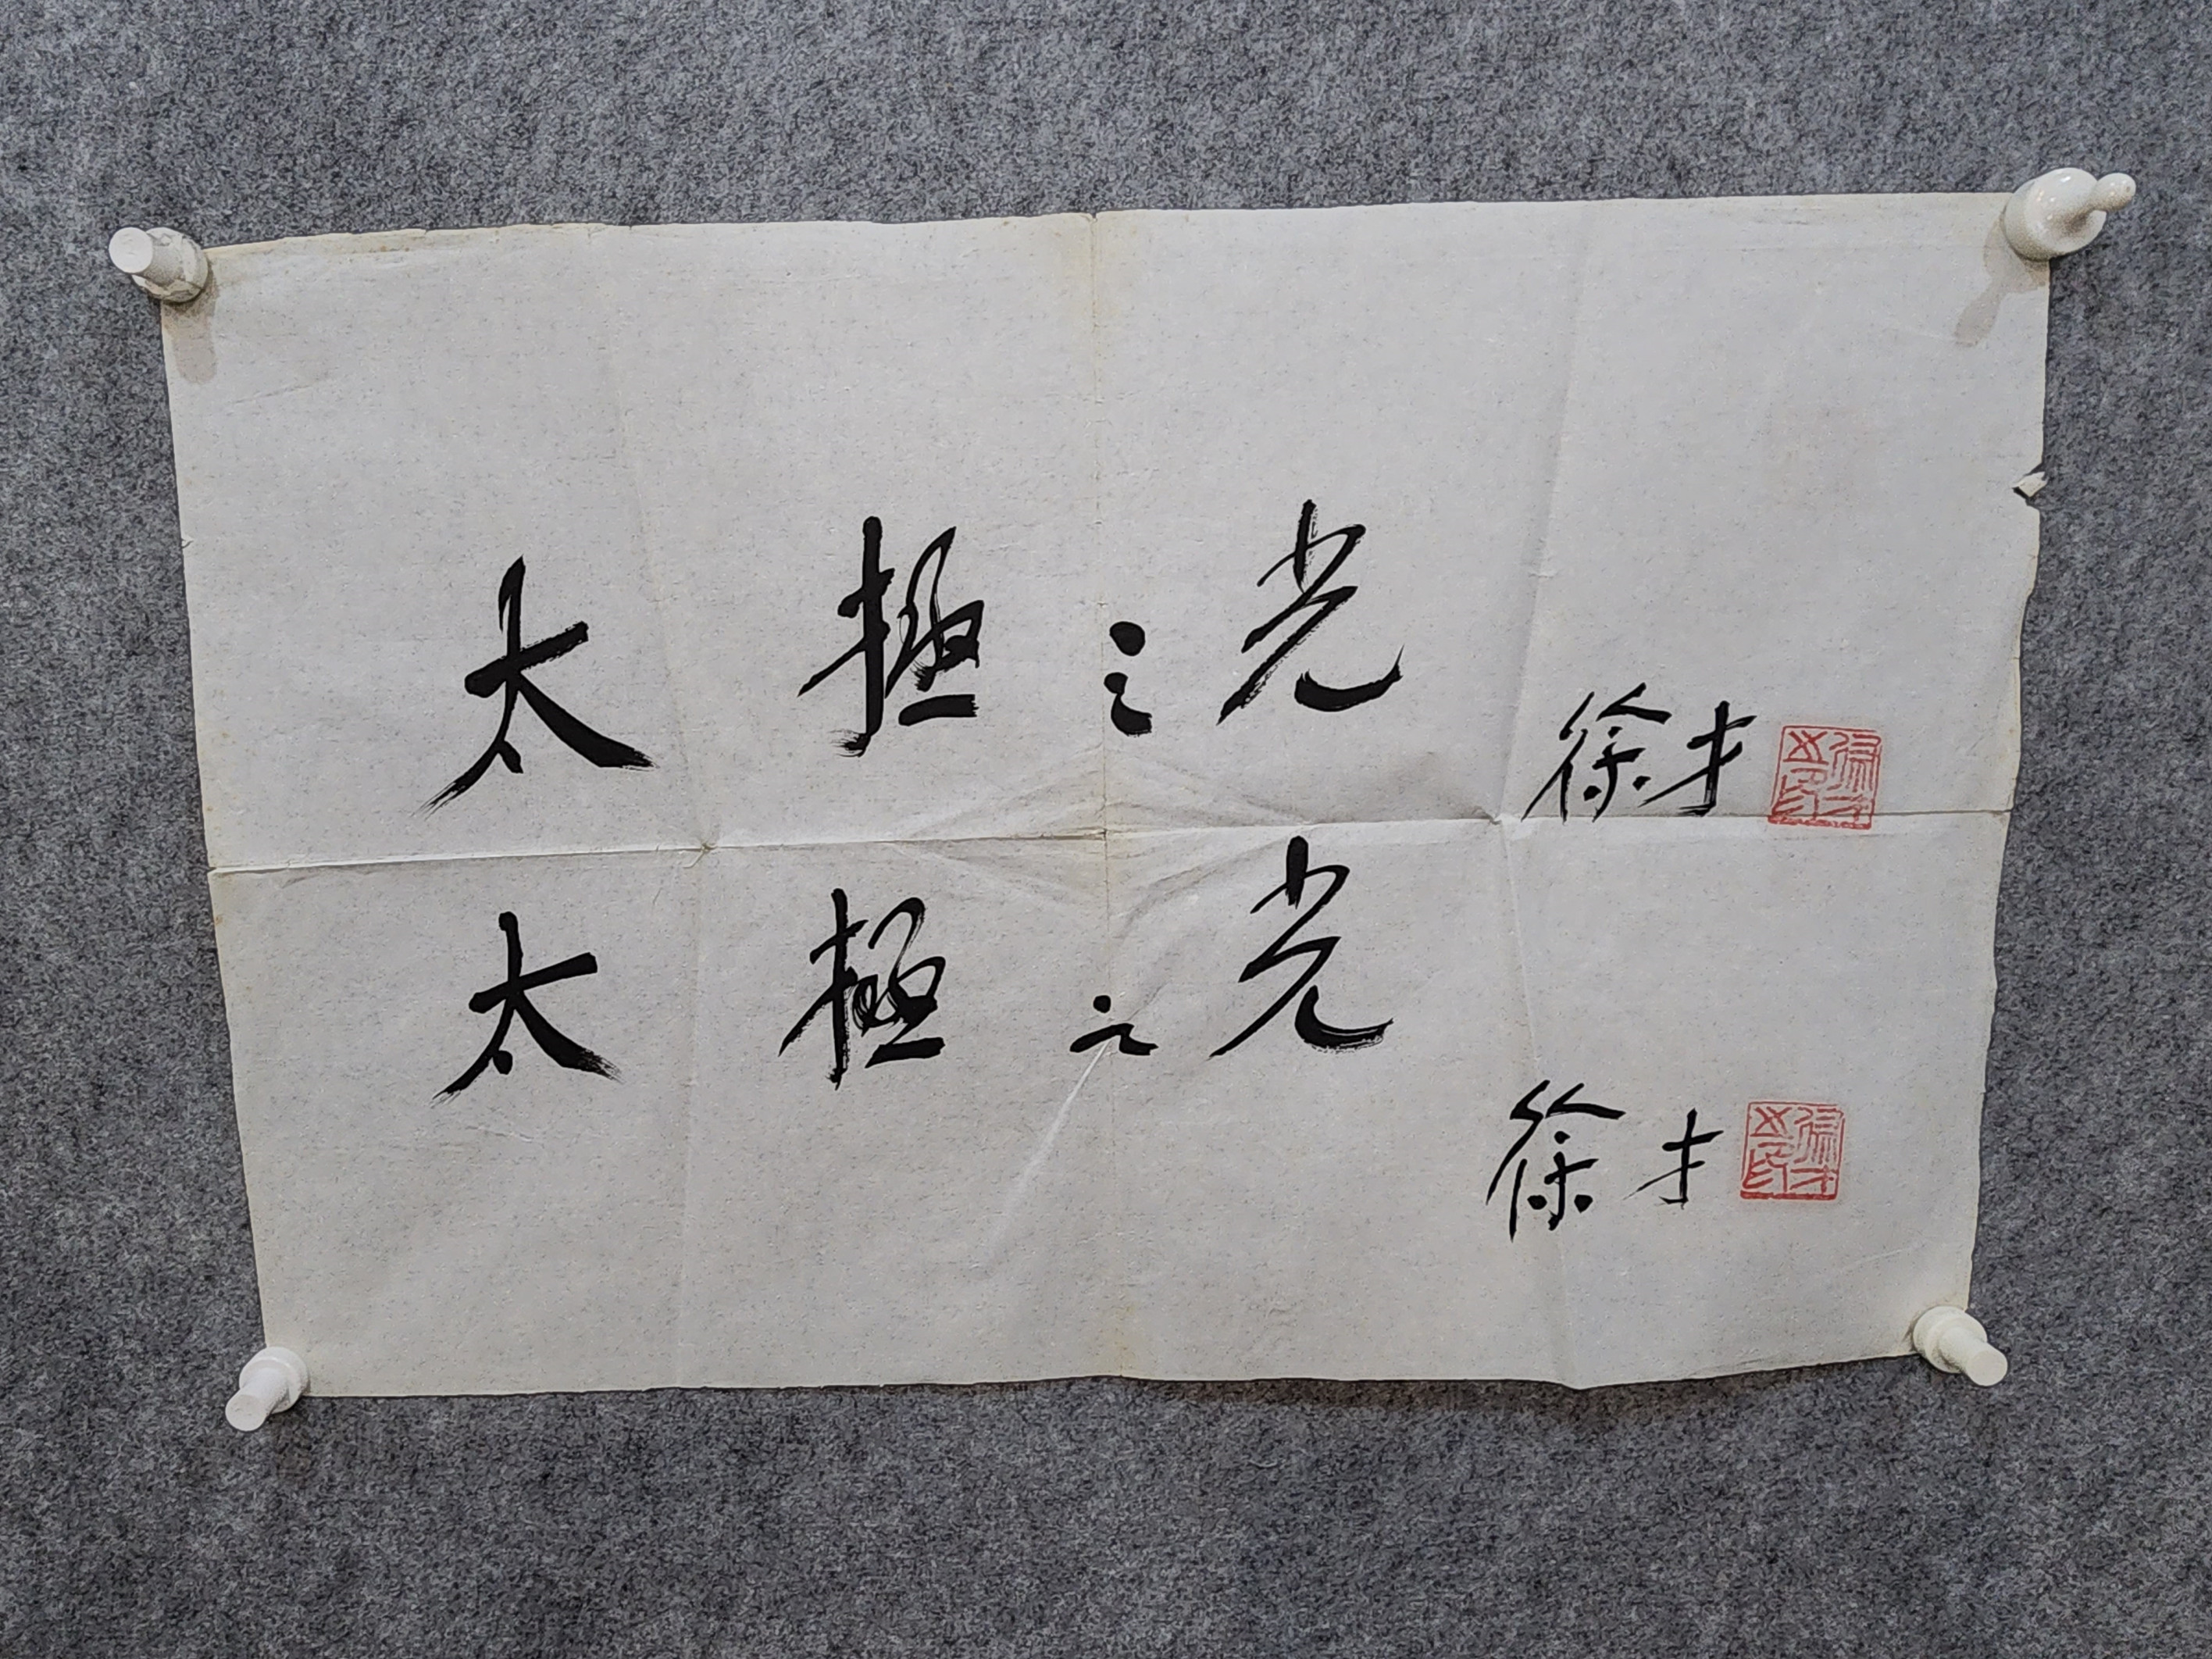 太極之光
徐才
太極之光
徐才